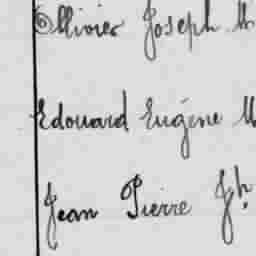 Ollivier Joseph M
Edouard Eugène M
Jean Pierre Jh.